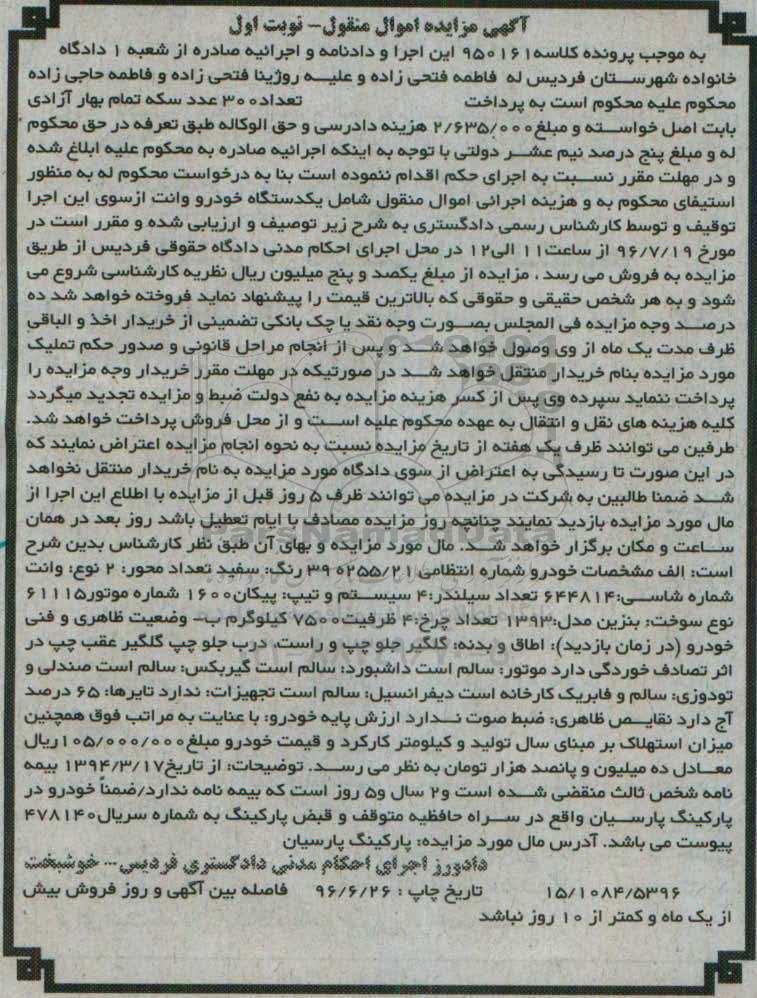 آگهی مزایده اموال منقول- نوبت اول
به موجب پرونده کلاسه ۹۵۰۱۶۱ این اجرا و دادنامه و اجرائیه صادره از شعبه ۱ دادگاه
خانواده شهرستان فردیس له فاطمه فتحی زاده و علیه روژینا فتحی زاده و فاطمه حاجی زاده
محکوم علیه محکوم است به پرداخت تعداد۳۰۰ عدد سکه تمام بهار آزادی
بابت اصل خواسته و مبلغ۲/۶۳۵/۰۰۰ هزینه دادرسی و حق الوکاله طبق تعرفه در حق محکوم
له و مبلغ پنج درصد نیم عشر دولتی با توجه به اینکه اجرائیه صادره به محکوم علیه ابلاغ شده
و در مهلت مقرر نسبت به اجرای حکم اقدام ننموده است بنا به درخواست محکوم له به منظور
استیفای محکوم به و هزینه اجرائی اموال منقول شامل یکدستگاه خودرو وانت ازسوی این اجرا
توقیف و توسط کارشناس رسمی دادگستری به شرح زیر توصیف و ارزیابی شده و مقرر است در
مورخ ۹۶/۷/۱۹ از ساعت۱۱ الی۱۲ در محل اجرای احکام مدنی دادگاه حقوقی فردیس از طریق
مزایده به فروش می رسد ، مزایده از مبلغ یکصد و پنج میلیون ریال نظریه کارشناسی شروع می
شود و به هر شخص حقیقی و حقوقی که بالاترین قیمت را پیشنهاد نماید فروخته خواهد شد ده
درصد وجه مزایده فی المجلس بصورت وجه نقد یا چک بانکی تضمینی از خریدار اخذ و الباقی
ظرف مدت یک ماه از وی وصول خواهد شد و پس از انجام مراحل قانونی و صدور حکم تملیک
مورد مزایده بنام خریدار منتقل خواهد شد در صورتیکه در مهلت مقرر خریدار وجه مزایده را
پرداخت ننماید سپرده وی پس از کسر هزینه مزایده به نفع دولت ضبط و مزایده تجدید میگردد
کلیه هزینه های نقل و انتقال به عهده محکوم علیه است و از محل فروش پرداخت خواهد شد.
طرفین می توانند ظرف یک هفته از تاریخ مزایده نسبت به نحوه انجام مزایده اعتراض نمایند که
در این صورت تا رسیدگی به اعتراض از سوی دادگاه مورد مزایده به نام خریدار منتقل نخواهد
شد ضمنا طالبین به شرکت در مزایده می توانند ظرف ۵ روز قبل از مزایده با اطلاع این اجرا از
مال مورد مزایده بازدید نمایند چنانچه روز مزایده مصادف با ایام تعطیل باشد روز بعد در همان
ساعت و مکان برگزار خواهد شد. مال مورد مزایده و بهای آن طبق نظر کارشناس بدین شرح
است: الف مشخصات خودرو شماره انتظامی ۲۵۵/۲۱ه۳۹ رنگ: سفید تعداد محور: ۲ نوع: وانت
شماره شاسی:۶۴۴۸۱۴ تعداد سیلندر:۴ سیستم و تیپ: پیکان۱۶۰۰ شماره موتور۶۱۱۱۵
نوع سوخت: بنزین مدل:۱۳۹۳ تعداد چرخ:۴ ظرفیت۷۵۰۰ کیلوگرم ب- وضعیت ظاهری و فنی
خودرو (در زمان بازدید): اطاق و بدنه: گلگیر جلو چپ و راست، درب جلو چپ گلگیر عقب چپ در
اثر تصادف خوردگی دارد موتور: سالم است داشبورد: سالم است گیربکس: سالم است صندلی و
تودوزی: سالم و فابریک کارخانه است دیفرانسیل: سالم است تجهیزات: ندارد تایرها: ۶۵ درصد
آج دارد نقایص ظاهری: ضبط صوت ندارد ارزش پایه خودرو: با عنایت به مراتب فوق همچنین
میزان استهلاک بر مبنای سال تولید و کیلومتر کارکرد و قیمت خودرو مبلغ۱۰۵/۰۰۰/۰۰۰ریال
معادل ده میلیون و پانصد هزار تومان به نظر می رسد. توضیحات: از تاریخ۱۳۹۴/۳/۱۷ بیمه
نامه شخص ثالث منقضی شده است و۲ سال و۵ روز است که بیمه نامه ندارد/ضمناً خودرو در
پارکینگ پارسیان واقع در سراه حافظیه متوقف و قبض پارکینگ به شماره سریال۴۷۸۱۴۰
پیوست می باشد. آدرس مال مورد مزایده: پارکینگ پارسیان
دادورز اجرای احکام مدنی دادگستری فردیس--- خوشبخت
۱۵/۱۰۸۴/۵۳۹۶ تاریخ چاپ : ۹۶/۶/۲۶ فاصله بین آگهی و روز فروش بیش
از یک ماه و کمتر از ۱۰ روز نباشد